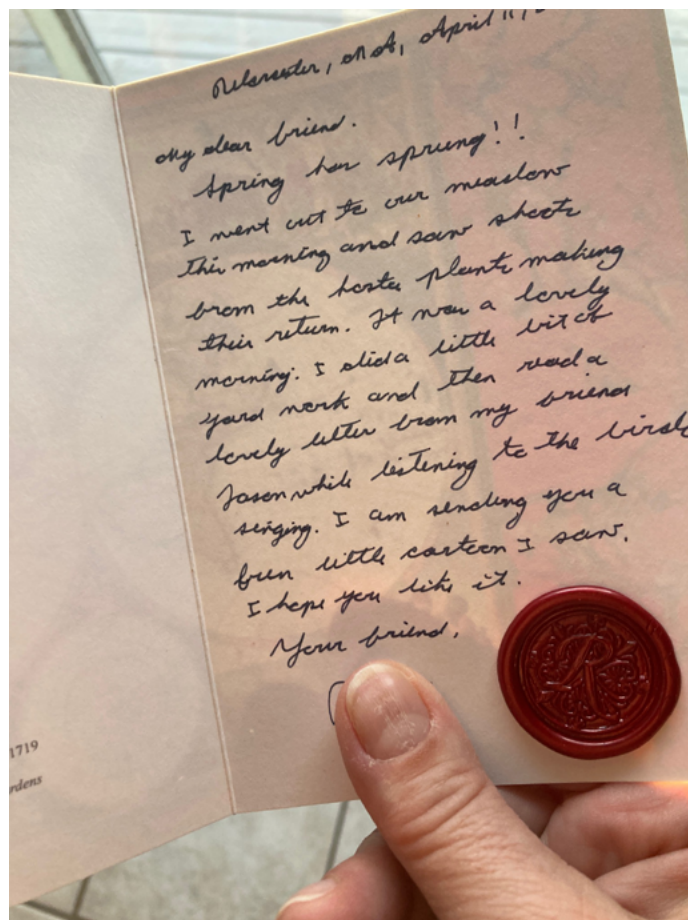 Worcester, MA, April 11,
My dear friend.
Spring has sprung!!
I went out to our meadow
this morning and saw shoots
from the hosta plants making
their return. It was a lovely
morning. I did a little bit of
yard work and then read a
lovely letter from my friend
Jason while listening to the birds
singing. I am sending you a
fun little cartoon I saw.
I hope you like it.
Your friend,
R
1719
rdens